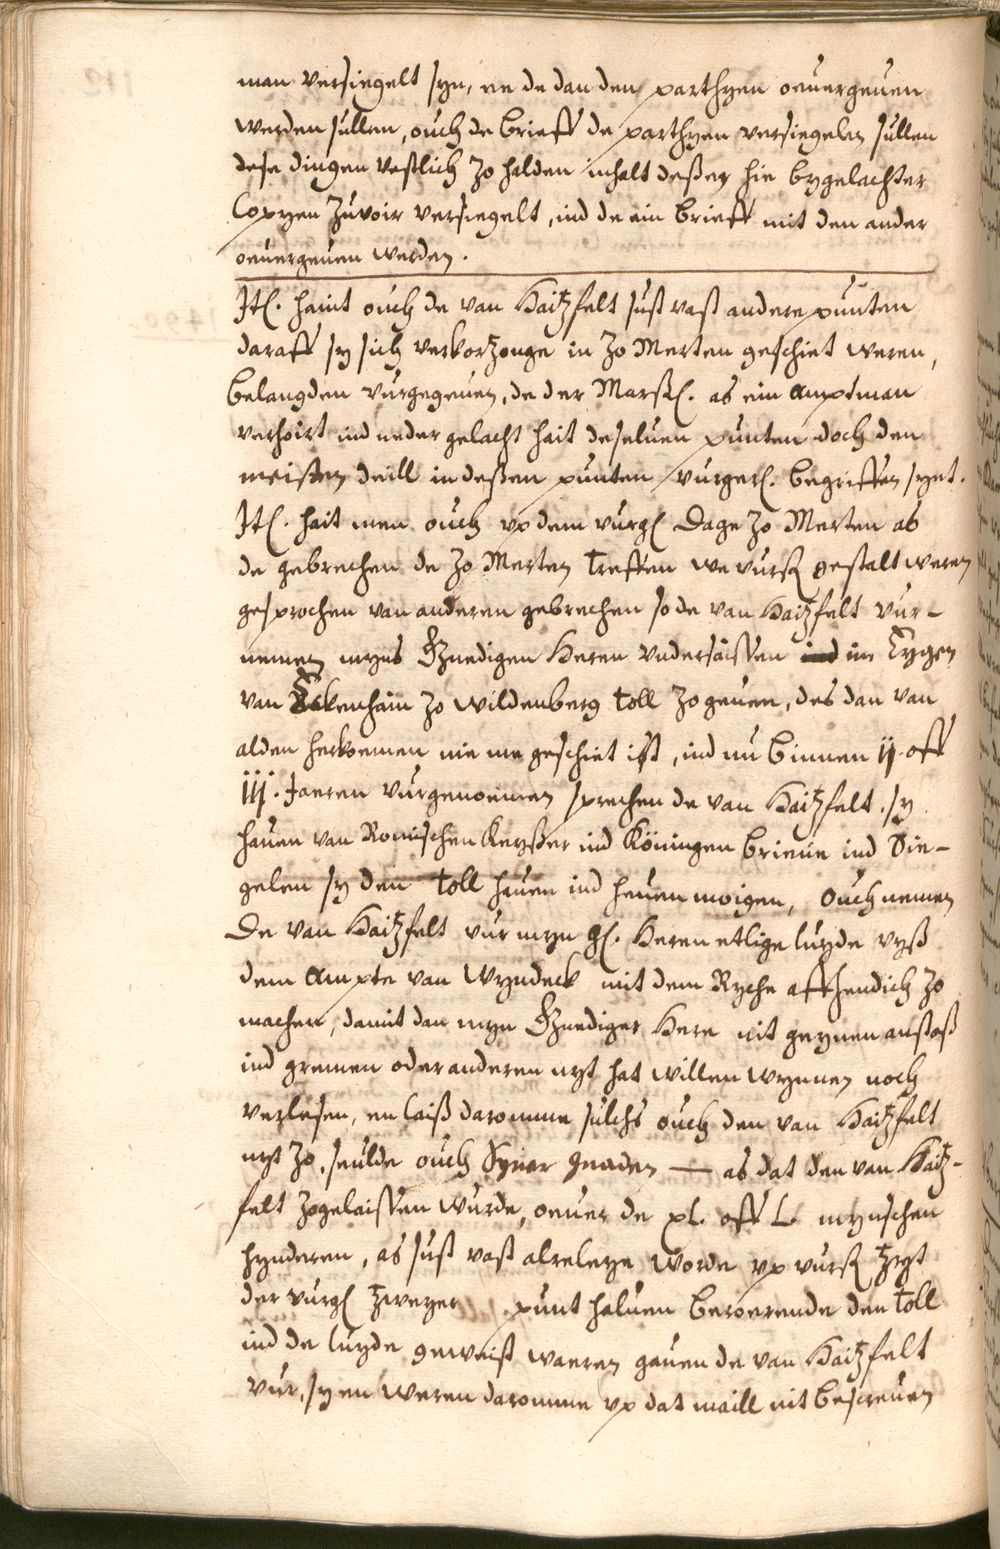 man versiegelt syn, en de dan den parthyen oeuergeuen
werden sullen, ouch de brieff de parthyen versiegelen sullen
dese dingen vestlich zo halden inhalt deßer hie bygelachter
Copyen zuvoir versiegelt, ind de ein brieff mit den ander
oeuergeuen werden.
Itē. haint ouch de van Haitzfelt sust vast andere punten
daraff sy sich verkortzonge in zo Merten geschiet weren,
belangden vurgegeuen, de der Marsch. as ein amptman
verhoirt ind neder gelacht hait deseluen punten doch den
meisten deill in deßen punten vurger. begriffen synt.
Itē. hait men ouch vp dem vurg. Dage zo Merten as
de gebrechen de zo Merten treffen we vurß gestalt weren
gesprochen van anderen gebrechen so de van Haitzfelt vur-
nemen myns Gnedigen Heren vndersaissen im
van Eckenhain zo wildenberg toll zo geuen, des dan van
alden herkoemen nie me geschiet ist, ind nu binnen ij. off
iij. Jaeren vurgenoemen sprechen de van Haitzfelt. sy
hauen van Romischen Keyßer ind Köningen brieue ind Sie-
gelen sy den toll hauen ind heuen moigen, Ouch nemen
De van Haitzfelt vur myn g. Heren etlige luyde vyß
dem Ampte van Wyndeck mit dem Ryche affhendich zo
machen, damit dan myn Gnediger Here nit geynen anstoß
ind gremen oder anderen nyt hat willen wynnen noch
verlesen, en laiß daromme sulchs ouch den van Haitzfelt
nyt zo, seulde ouch Syner gnaden — as dat den van Haitz-
felt zogelaissen wurde, oeuer de xL. off L. mynschen
hynderen, as sust vast alreleye worde vp vurß tzyt
der vurg. tzweyer punt haluen beroerende den toll
ind de luyde geweist waeren gauen de van Haitzfelt
vur, sy en weren daromme vp dat maill nit bescreuen